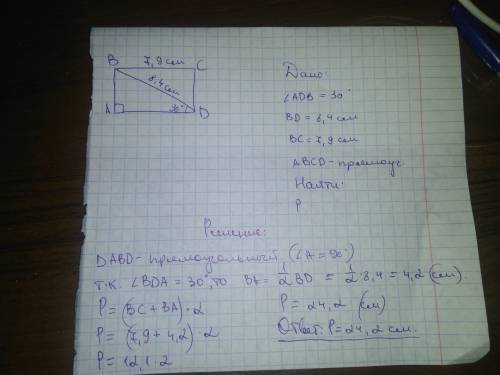 B 7,9 см C
8,4 см
A 30° D
Дано:
∠ADB = 30°
BD = 8,4 см
BC = 7,9 см
ABCD - прямоуг.
Найти:
P
Решение:
DABD - прямоугольный (∠A = 90°)
т.к. ∠BDA = 30°, то BA = 1/2 BD = 1/2 · 8,4 = 4,2 (см)
P = (BC + BA) · 2
P = (7,9 + 4,2) · 2
P = 12,1 · 2
P = 24,2 (см)
Ответ: P = 24,2 см.